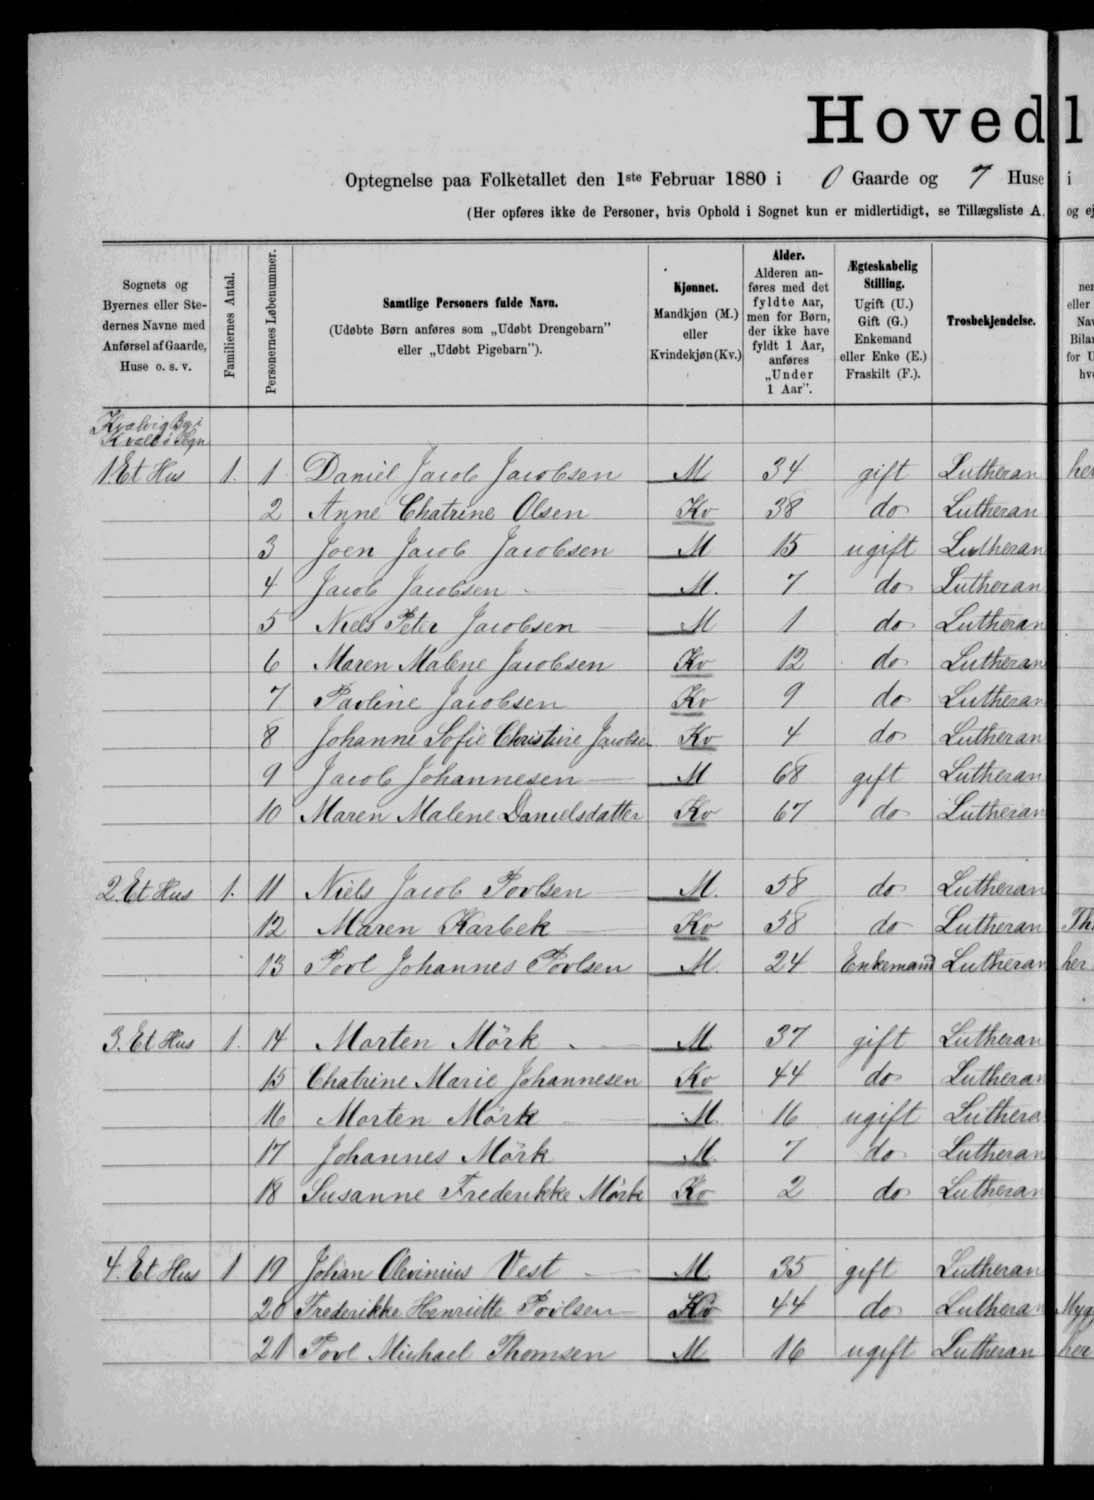 Hoved l
Optegnelse paa Folketallet den 1ste Februar 1880 i 0 Gaarde og 7 Huse i
(Her opføres ikke de Personer, hvis Ophold i Sognet kun er midlertidigt, se Tillægsliste A. og ej
Sognets og Byernes eller Stedernes Navne med Anførsel af Gaarde, Huse o. s. v.
Familiernes Antal.
Personernes Løbenummer.
Samtlige Personers fulde Navn.
(Udøbte Børn anføres som „Udøbt Drengebarn"
eller „Udøbt Pigebarn").
Kjønnet.
Mandkjøn (M.)
eller
Kvindekjøn (Kv.)
Alder.
Alderen an-
føres med det
fyldte Aar,
men for Børn,
der ikke have
fyldt 1 Aar,
anføres
„Under
1 Aar".
Ægteskabelig
Stilling.
Ugift (U.)
Gift (G.)
Enkemand
eller Enke (E.)
Fraskilt (F.).
Trosbekjendelse.
Kvalvig By i
Kvalbö Sogn
1. Et Hus 1. 1 Daniel Jacob Jacobsen M 34 gift Lutheran her
2 Anne Chatrine Olsen Kv 38 do Lutheran
3 Joen Jacob Jacobsen M 15 ugift Lutheran
4 Jacob Jacobsen M. 7 do Lutheran
5 Niels Peter Jacobsen M 1 do Lutheran
6 Maren Malene Jacobsen Kv 12 do Lutheran
7 Pavline Jacobsen Kv 9 do Lutheran
8 Johanne Sofie Christine Jacobsen Kv 4 do Lutheran
9 Jacob Johannesen M 68 gift Lutheran
10 Maren Malene Danielsdatter Kv 67 do Lutheran
2. Et Hus 1. 11 Niels Jacob Povlsen M. 58 do Lutheran
12 Maren Karbek Kv 58 do Lutheran Th
13 Povl Johannes Povlsen M. 24 Enkemand Lutheran her
3. Et Hus 1. 14 Morten Mörk M 37 gift Lutheran
15 Chatrine Marie Johannesen Kv 44 do Lutheran
16 Morten Mörk M 16 ugift Luthera
17 Johannes Mörk M. 7 do Lutheran
18 Susanne Frederikke Mörk Kv 2 do Lutheran
4. Et Hus 1 19 Johan Olevinius Vest M. 35 gift Lutheran
20 Frederikke Henriette Povlsen Kv 44 do Lutheran Myg
21 Povl Michael Thomsen M 16 ugift Lutheran her